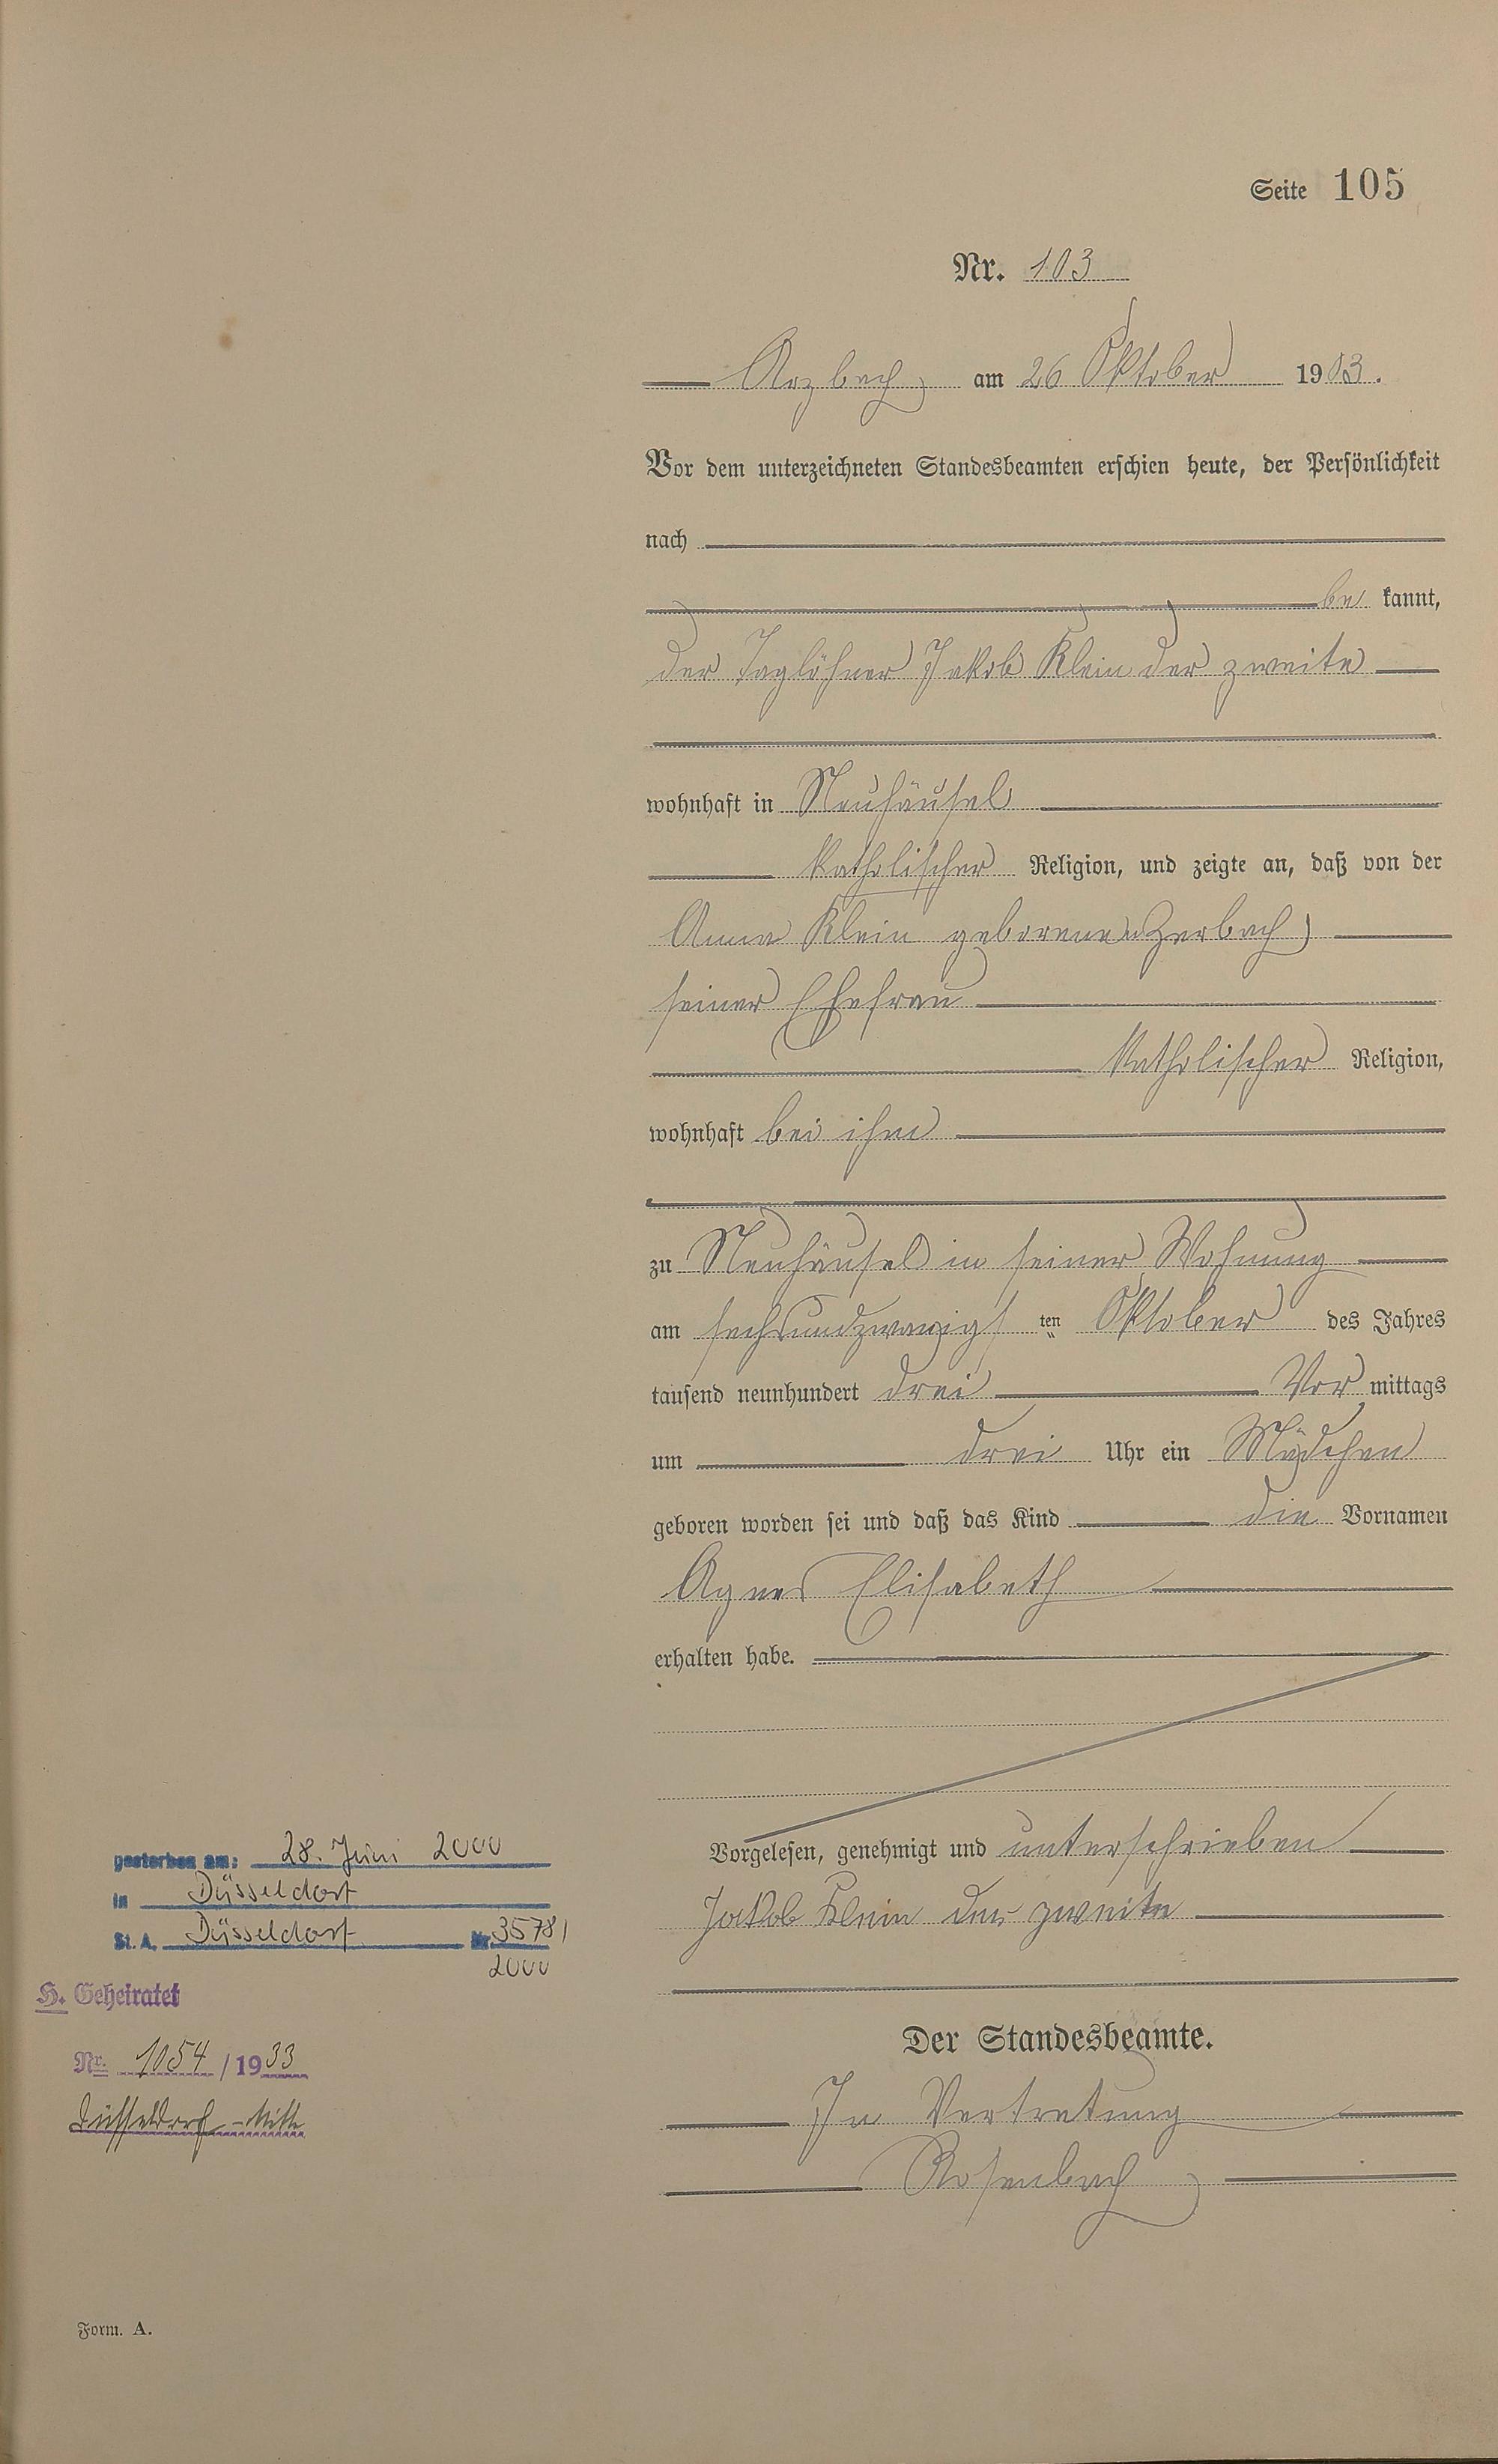 Seite 105
Nr. 103
Arzbach, am 26 Oktober 1903.
Vor dem unterzeichneten Standesbeamten erschien heute, der Persönlichkeit
nach
be kannt,
der Taglöhner Jakob Klein der zweite
wohnhaft in Neuhäusel
katholischer Religion, und zeigte an, daß von der
Anna Klein geborenen Zerbach
seiner Ehefrau
katholischer Religion,
wohnhaft bei ihm
zu Neuhäusel in seiner Wohnung
am sechsundzwanzigs ten Oktober des Jahres
tausend neunhundert drei Vor mittags
um drei Uhr ein Mädchen
geboren worden sei und daß das Kind die Vornamen
Agnes Elisabeth
erhalten habe.
Vorgelesen, genehmigt und unterschrieben
Jakob Klein der zweite
Der Standesbeamte.
In Vertretung
Rosenbach
gestorben am: 28. Juni 2000
in Düsseldorf
St. A. Düsseldorf Nr. 3578/
2000
H. Geheiratet
Nr. 1054/1933
Düsseldorf-Mitte
Form. A.